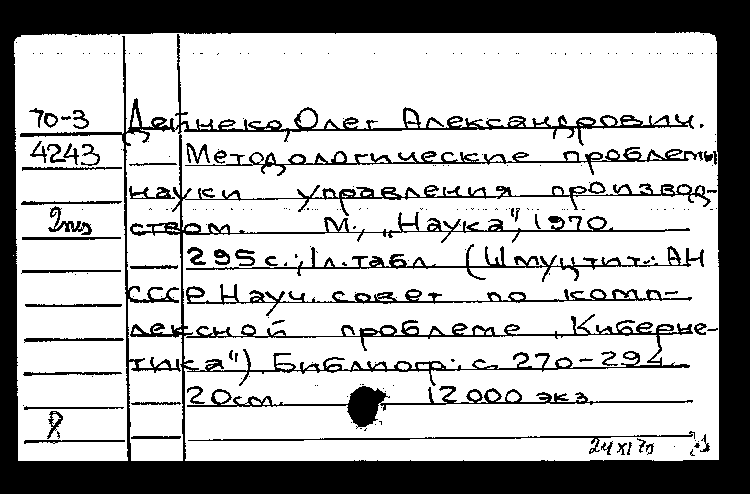 70-3 Дейнеко, Олег Александрович.
4243 Методологические проблемы
науки управления производ-
ством. М., „Наука", 1970.
295 с.; 1 л. табл. (Шмуцтит.: АН
СССР. Науч. совет по комп-
лексной проблеме „Киберне-
тика") Библиогр.: с. 270-294
20см. 12000 экз.
8
24 XI 70